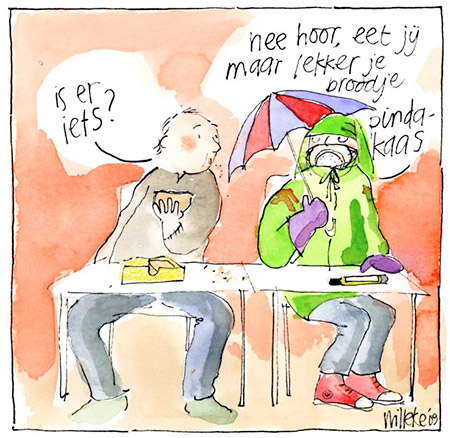 is er
iets?
nee hoor, eet jij
maar lekker je
broodje
pinda-
kaas
Willeke'09